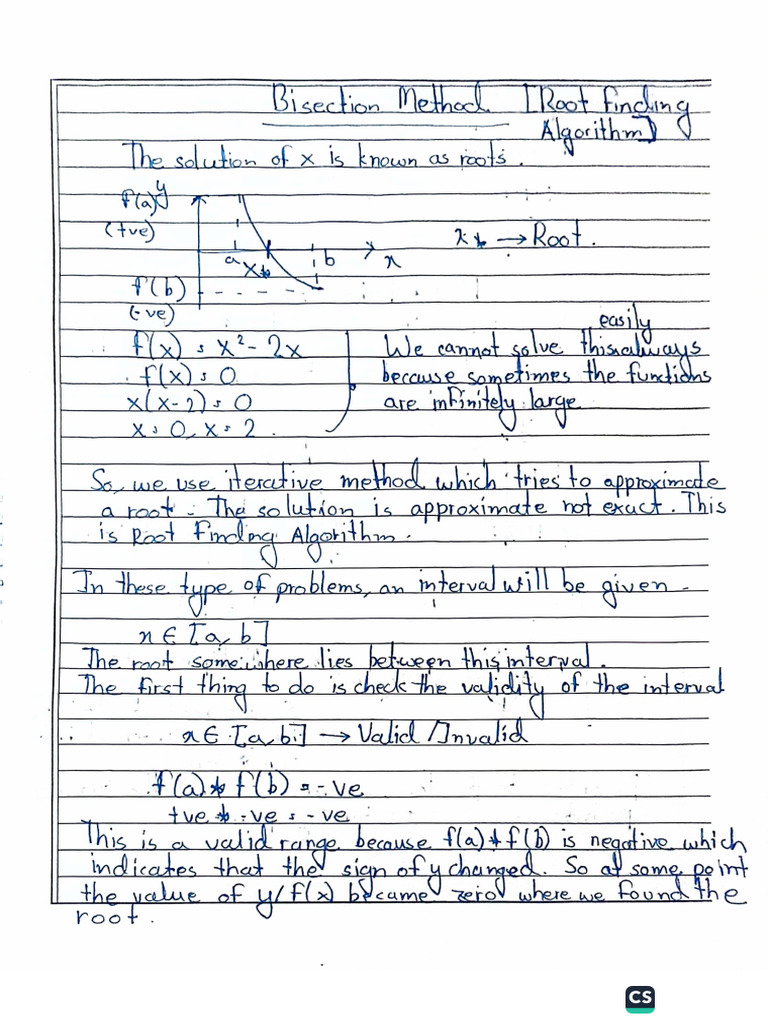 Bisection Method [Root Finding
Algorithm]
The solution of x is known as roots.
y
f(a)
(+ve)
a
x*
b
x
x* → Root.
f(b)
(-ve)
easily
f(x) = x² - 2x
We cannot solve this always
f(x) = 0
because sometimes the functions
x(x-2) = 0
are infinitely large
x = 0, x = 2.
So, we use iterative method which tries to approximate
a root. The solution is approximate not exact. This
is Root Finding Algorithm.
In these type of problems, an interval will be given.
x ∈ [a, b]
The root somewhere lies between this interval.
The first thing to do is check the validity of the interval
x ∈ [a, b] → Valid / Invalid
f(a) * f(b) = -ve
+ve * -ve = -ve
This is a valid range because f(a) * f(b) is negative which
indicates that the sign of y changed. So at some point
the value of y/f(x) became zero where we found the
root.
CS